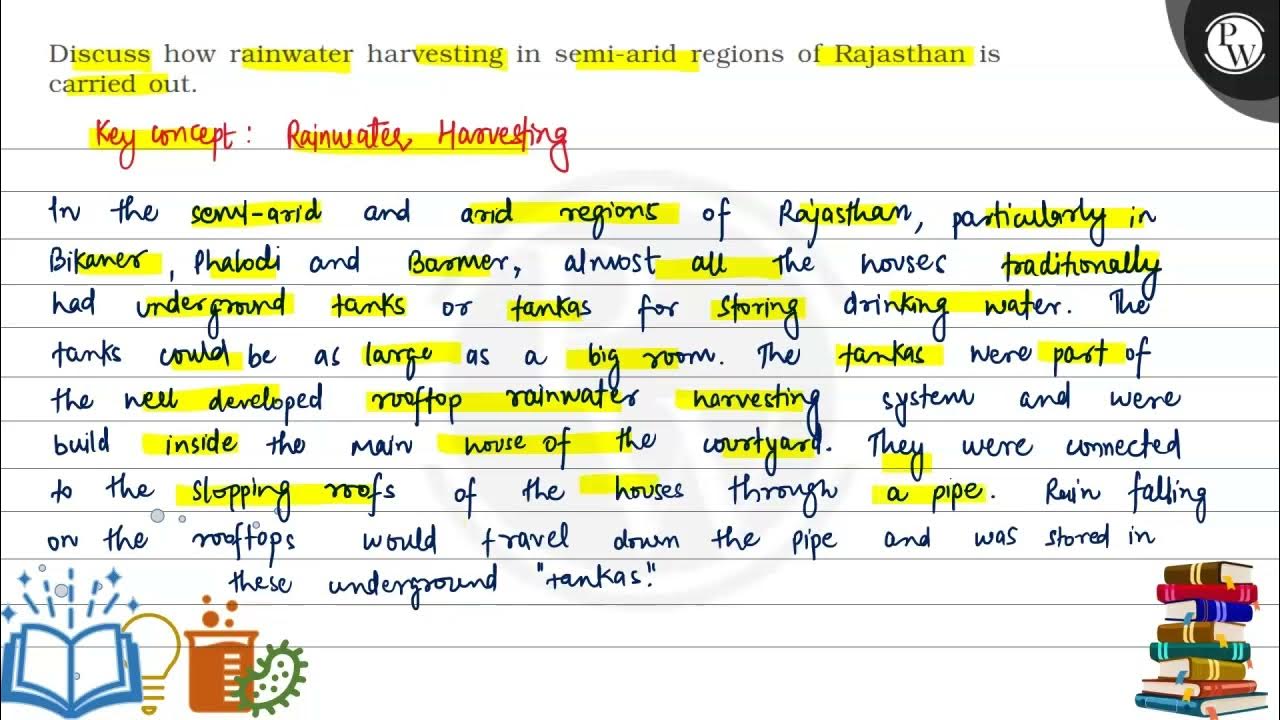 Discuss how rainwater harvesting in semi-arid regions of Rajasthan is
carried out.
PW
Key concept: Rainwater Harvesting
In the semi-arid and arid regions of Rajasthan, particularly in
Bikaner, Phalodi and Barmer, almost all the houses traditionally
had underground tanks or tankas for storing drinking water. The
tanks could be as large as a big room. The tankas were part of
the well developed rooftop rainwater harvesting system and were
build inside the main house of the courtyard. They were connected
to the slopping roofs of the houses through a pipe. Rain falling
on the rooftops would travel down the pipe and was stored in
these underground "tankas."